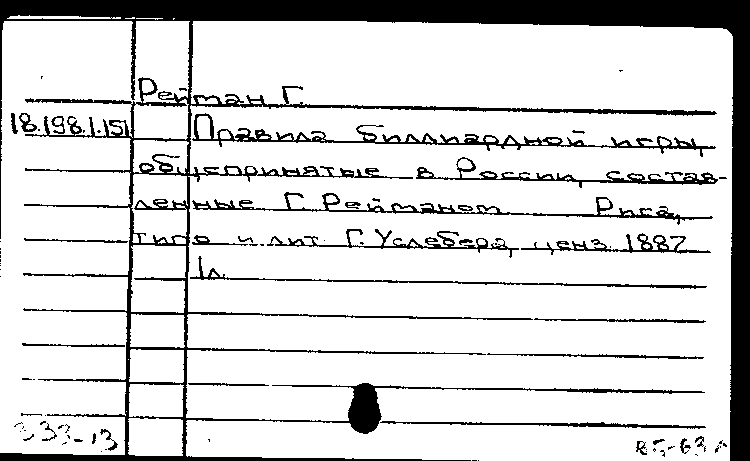 Рейтан, Г.
18.198.1.151 Правила биллиардной игры,
общепринятые в России, состав-
ленные Г. Рейтаном Рига,
типо и лит Г. Услебера, ценз. 1887
1л.
333-13